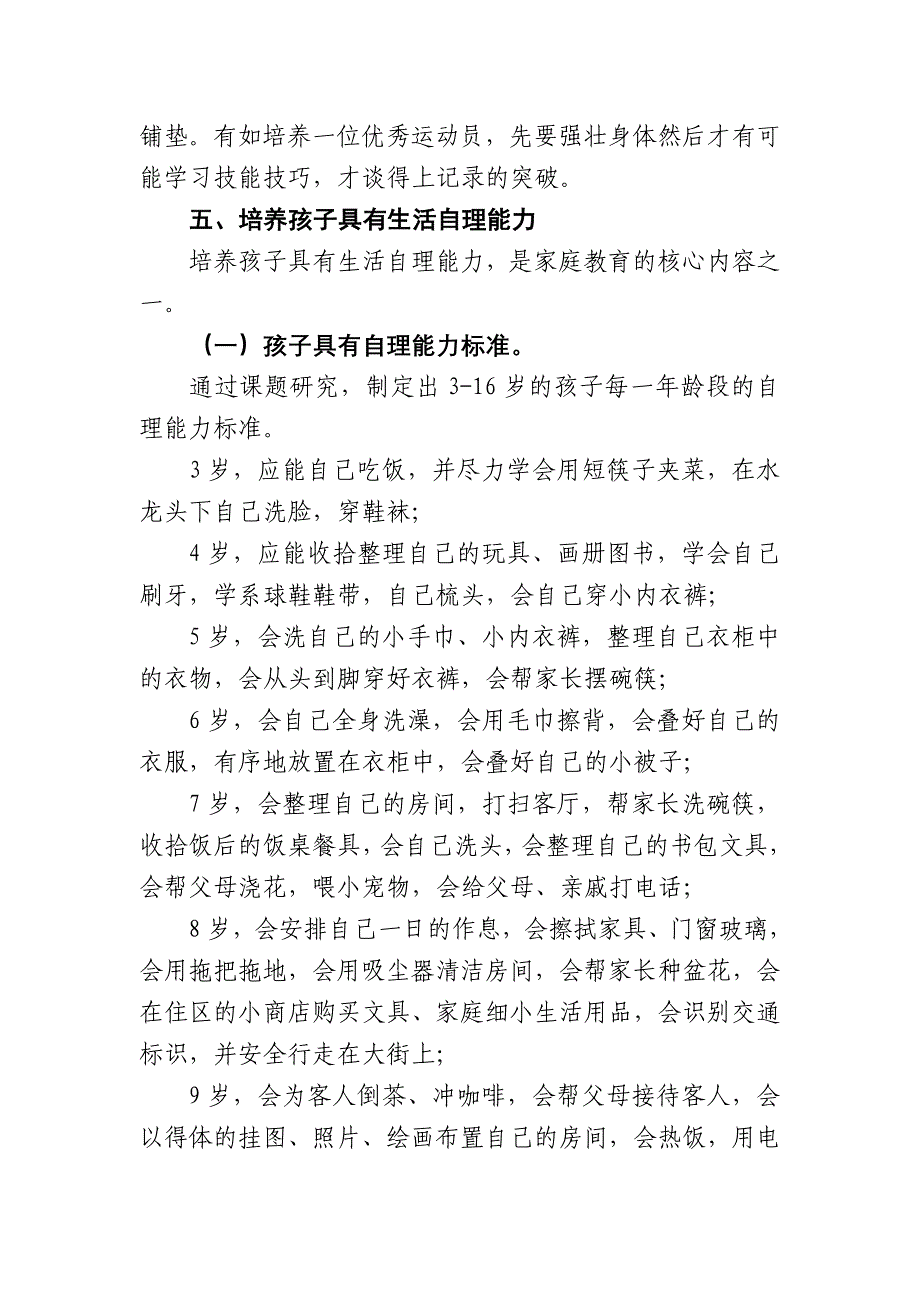 铺垫。有如培养一位优秀运动员，先要强壮身体然后才有可
能学习技能技巧，才谈得上记录的突破。
五、培养孩子具有生活自理能力
培养孩子具有生活自理能力，是家庭教育的核心内容之
一。
（一）孩子具有自理能力标准。
通过课题研究，制定出 3-16 岁的孩子每一年龄段的自
理能力标准。
3 岁，应能自己吃饭，并尽力学会用短筷子夹菜，在水
龙头下自己洗脸，穿鞋袜；
4 岁，应能收拾整理自己的玩具、画册图书，学会自己
刷牙，学系球鞋鞋带，自己梳头，会自己穿小内衣裤；
5 岁，会洗自己的小手巾、小内衣裤，整理自己衣柜中
的衣物，会从头到脚穿好衣裤，会帮家长摆碗筷；
6 岁，会自己全身洗澡，会用毛巾擦背，会叠好自己的
衣服，有序地放置在衣柜中，会叠好自己的小被子；
7 岁，会整理自己的房间，打扫客厅，帮家长洗碗筷，
收拾饭后的饭桌餐具，会自己洗头，会整理自己的书包文具，
会帮父母浇花，喂小宠物，会给父母、亲戚打电话；
8 岁，会安排自己一日的作息，会擦拭家具、门窗玻璃，
会用拖把拖地，会用吸尘器清洁房间，会帮家长种盆花，会
在住区的小商店购买文具、家庭细小生活用品，会识别交通
标识，并安全行走在大街上；
9 岁，会为客人倒茶、冲咖啡，会帮父母接待客人，会
以得体的挂图、照片、绘画布置自己的房间，会热饭，用电